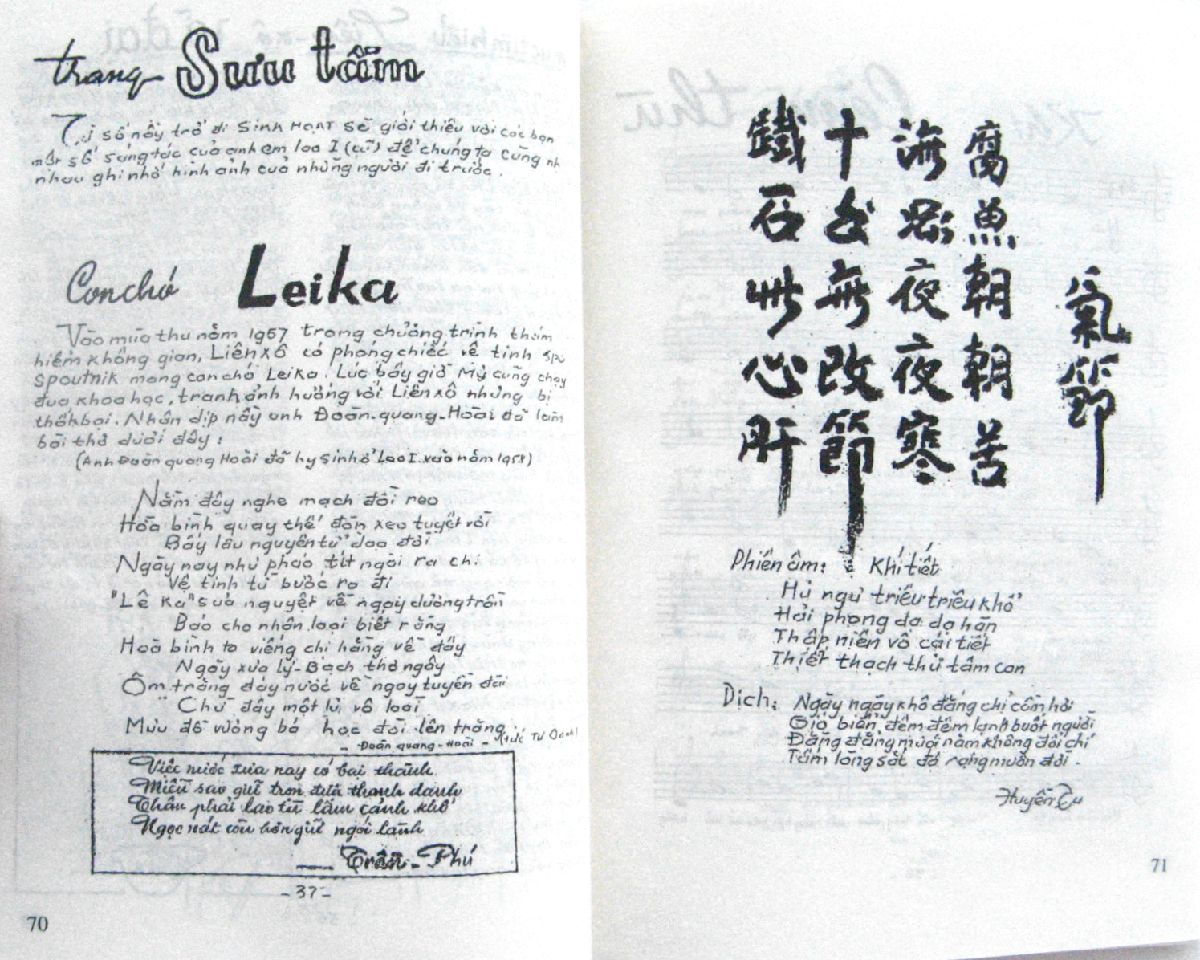 trang Sưu tầm
Từ số nầy trở đi SINH HOẠT sẽ giới thiệu với các bạn
một số sáng tác của anh em lao I (cũ) để chúng ta cùng nh
nhau ghi nhớ hình ảnh của những người đi trước.
Con chó Leika
Vào mùa thu năm 1957 trong chương trình thám
hiểm không gian, Liên xô có phóng chiếc vệ tinh spu
SPOUTNIK mang con chó Leika. Lúc bấy giờ Mỹ cũng chạy
đua khoa học, tranh ảnh hưởng với Liên xô nhưng bị
thất bại. Nhân dịp nầy anh Đoàn-quang-Hoài đã làm
bài thơ dưới đây:
(Anh Đoàn quang Hoài đã hy sinh ở lao I vào năm 1958)
Nằm đây nghe mạch đời reo
Hoà bình quay thế đòn xeo tuyệt vời
Bấy lâu nguyên tử doạ đời
Ngày nay như pháo tịt ngòi ra chi
Vệ tinh từ bước ra đi
"Lê Ka" sủa nguyệt về ngay dương trần
Báo cho nhân loại biết rằng
Hoà bình to viếng chị hằng về đây
Ngày xưa lý-Bạch thơ ngây
Ôm trăng đáy nước về ngay tuyền đài
Chừ đây một lũ vô loài
Mưu đồ vương bá học đòi lên trăng
- Đoàn quang-Hoài -
Việc nước xưa nay có bại thành
Miễn sao giữ trọn đặng thanh danh
Thân phải lao tù lâm cảnh khổ
Ngọc nát còn hơn giữ ngói lành
Trần-Phú
- 37 -
70
氣節
腐魚朝朝苦
海風夜夜寒
十年無改節
鐵石此心肝
Phiên âm: Khí tiết
Hủ ngư triêu triêu khổ
Hải phong dạ dạ hàn
Thập niên vô cải tiết
Thiết thạch thử tâm can
Dịch: Ngày ngày khô đắng chỉ cầm hơi
Gió biển đêm đêm lạnh buốt người
Đằng đẳng mười năm không đổi chí
Tấm lòng sắt đá rạng muôn đời.
Huyền Tu
71